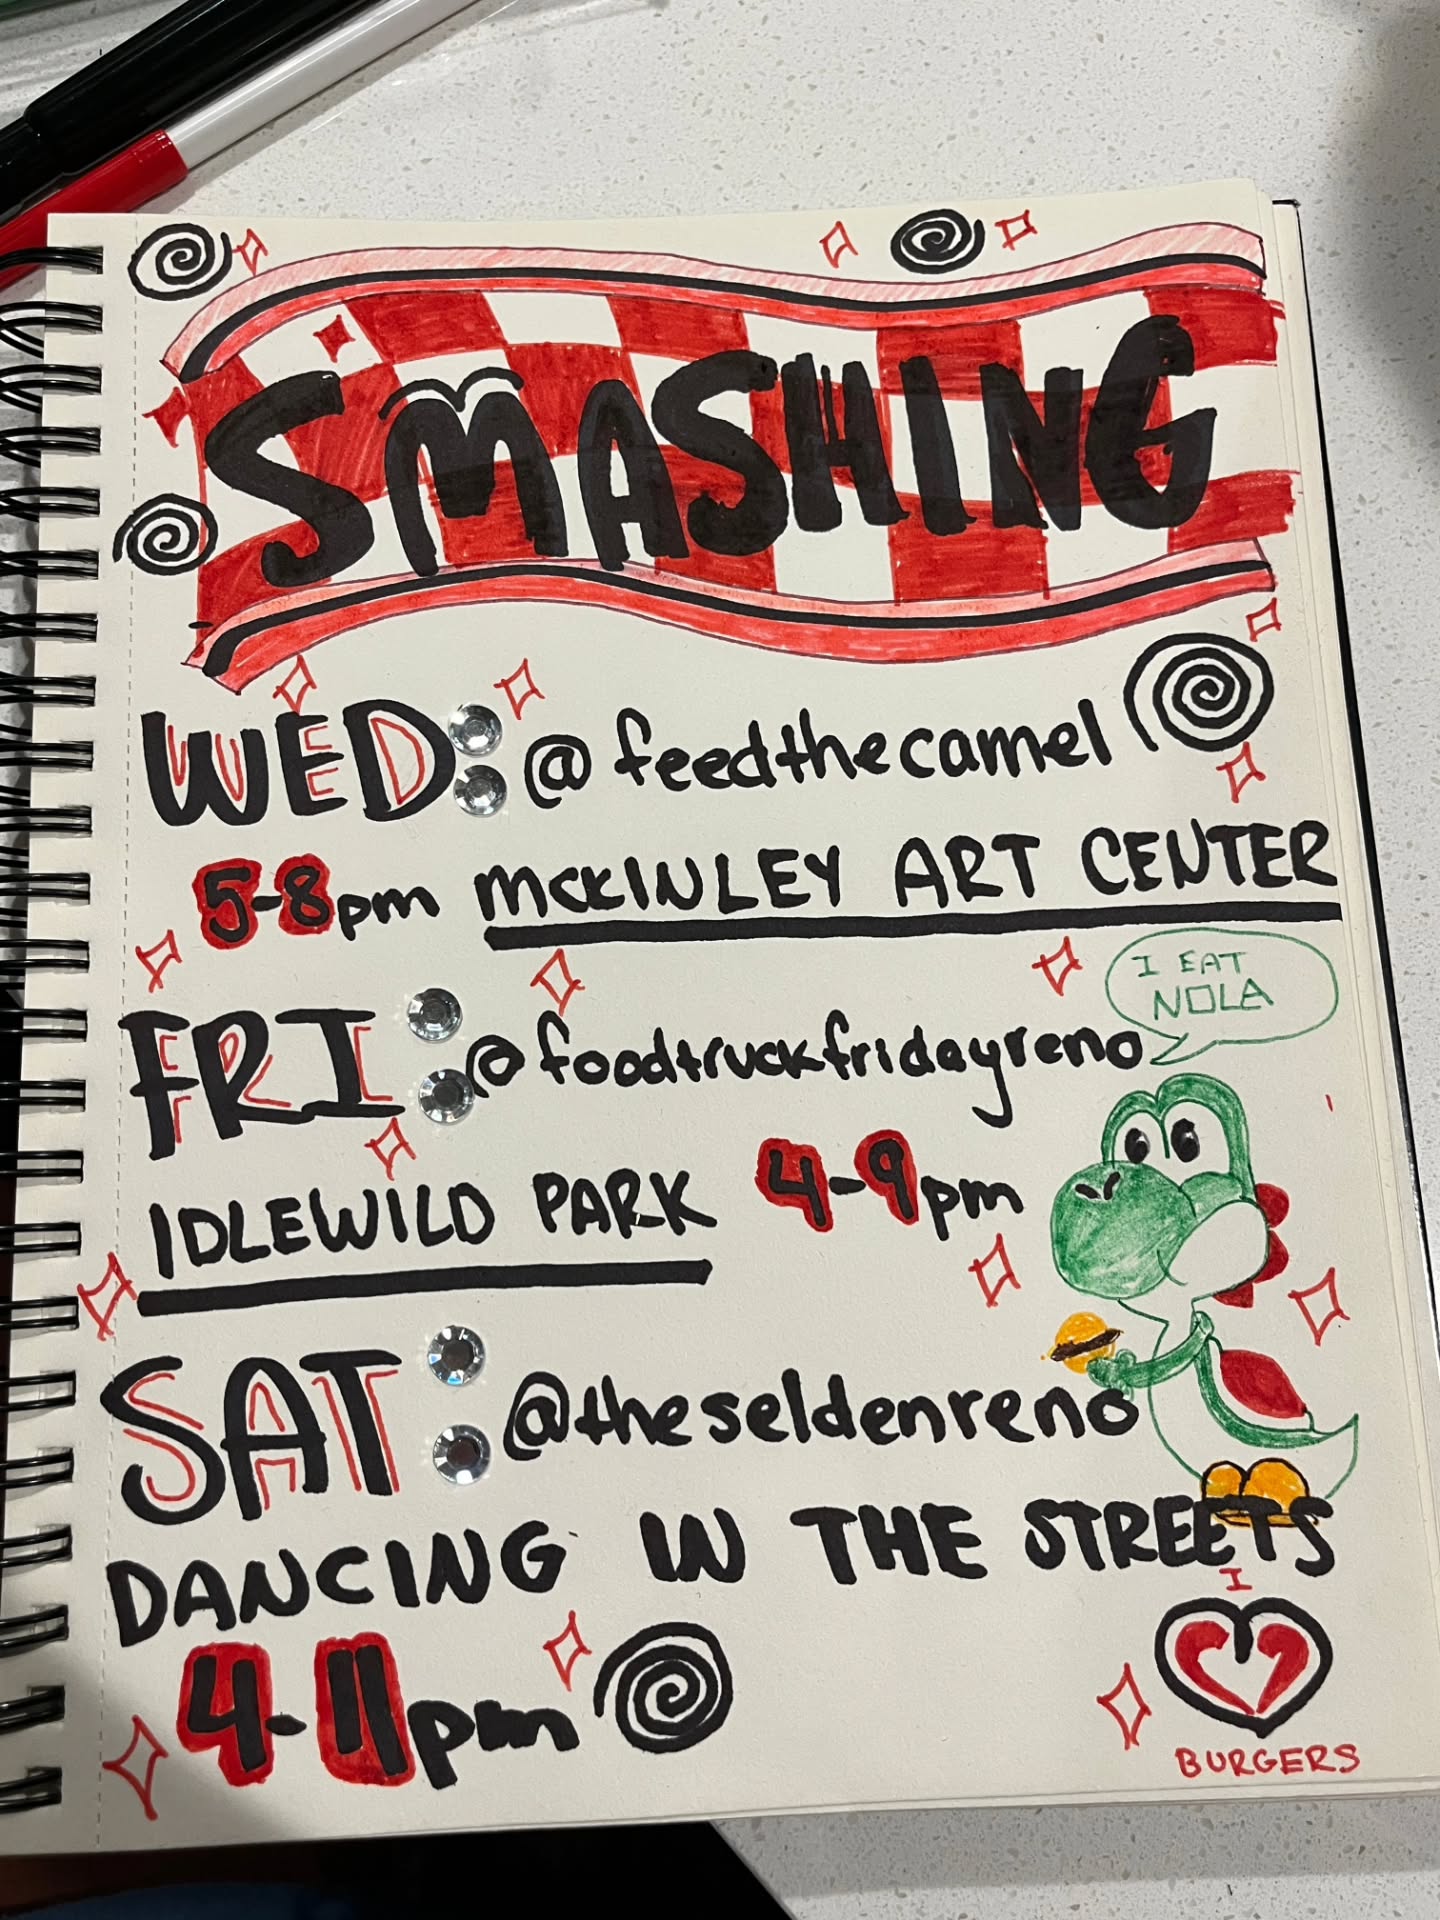 SMASHING
WED: @feedthecamel
5-8pm MCKINLEY ART CENTER
I EAT
NOLA
FRI: @foodtruckfridayreno
IDLEWILD PARK 4-9pm
SAT: @theseldenreno
DANCING IN THE STREETS
4-11pm
I
BURGERS